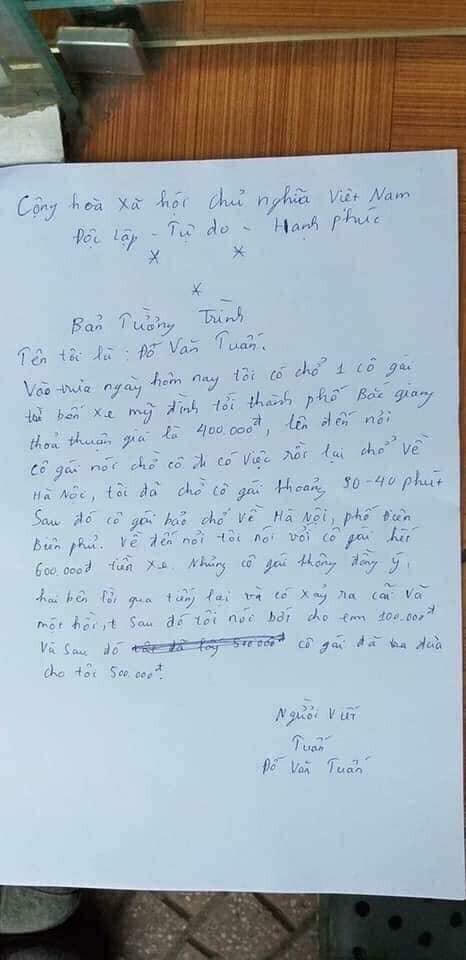 Cộng hoà xã hội chủ nghĩa Việt Nam
Độc lập - Tự do - Hạnh phúc
* *
*
Bản Tường Trình
Tên tôi là : Đỗ Văn Tuấn.
Vào trưa ngày hôm nay tôi có chở 1 cô gái
từ bến xe mỹ đình tới thành phố Bắc giang
thoả thuận giá là 400.000đ, lên đến nơi
cô gái nói chờ cô đi có việc rồi lại chở về
Hà Nôc, tôi đã chờ cô gái khoảng 30-40 phút
Sau đó cô gái bảo chở về Hà Nội, phố Điên
Biên phủ. Về đến nơi tôi nói với cô gái hết
600.000đ tiền xe. Nhưng cô gái không đồng ý,
hai bên lời qua tiếng lại và có xảy ra cãi vã
một hồi, Sau đó tôi nói bớt cho em 100.000đ
và sau đó cô gái đã đưa
cho tôi 500.000đ.
Người Viết
Tuấn
Đỗ Văn Tuấn